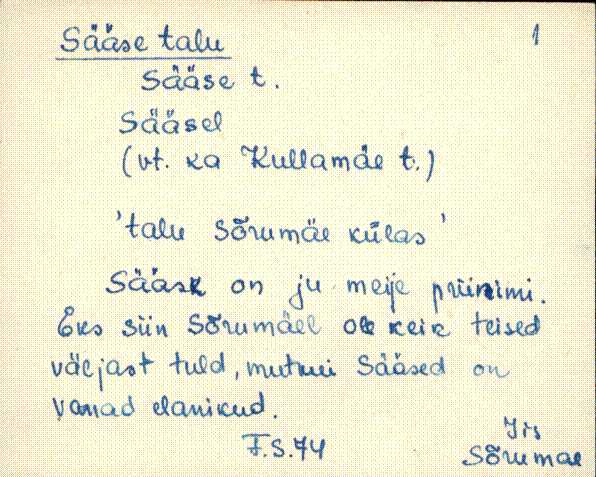 Sääse talu 1
Sääse t.
Sääsel
(vt. ka Kullamäe t.)
'talu Sõrumäe külas'
Sääsk on ju meije priinimi.
Eks siin Sõrumäel ole keik teised
väljast tuld, mutmi Sääsed on
vanad elanikud.
F.S.74
Iis
Sõrumäe